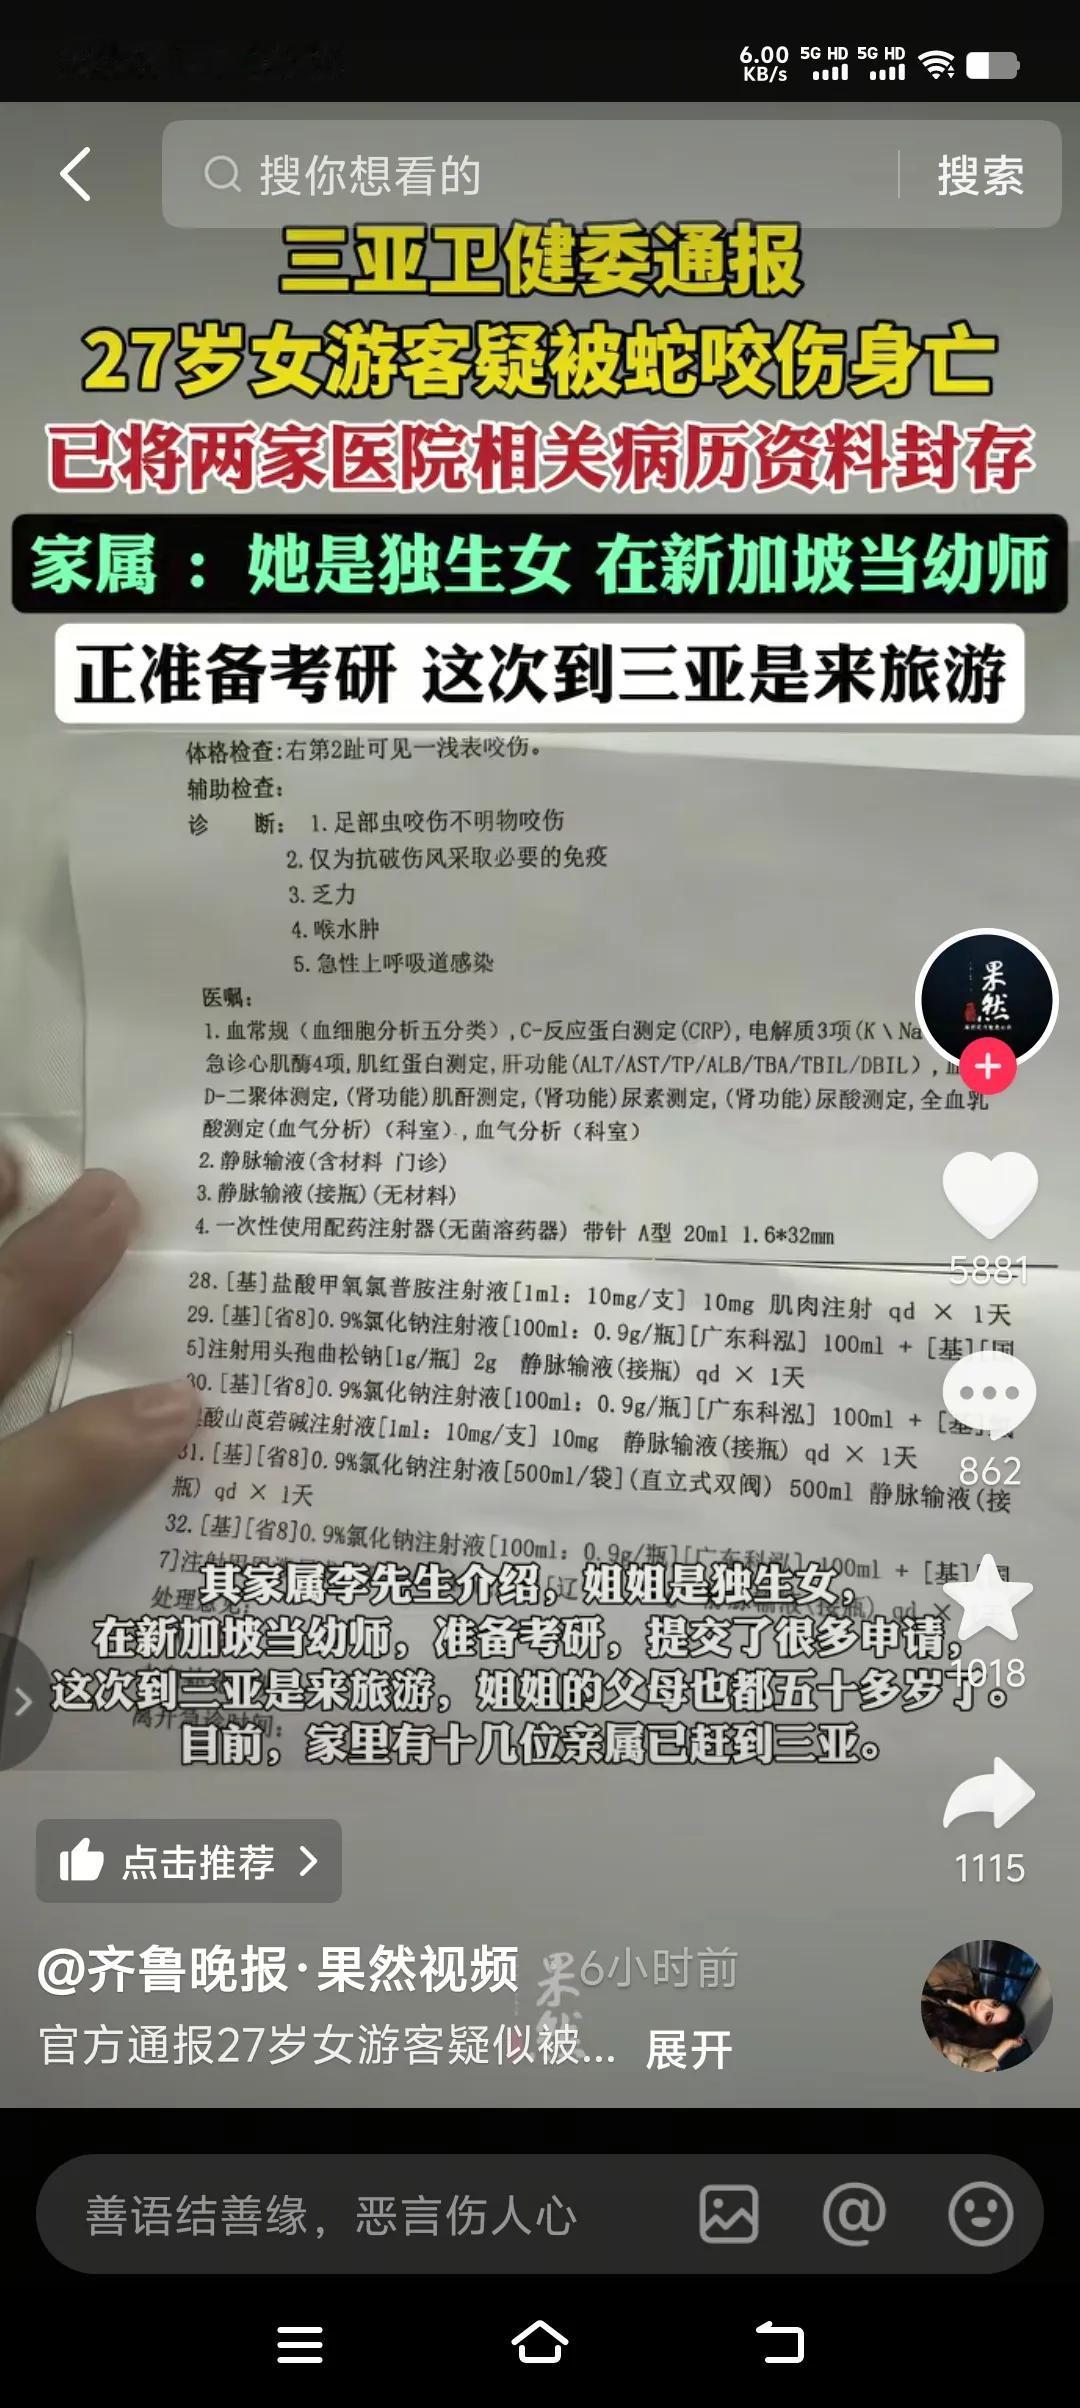 6.00 KB/s 5G HD 5G HD
搜你想看的 搜索
三亚卫健委通报
27岁女游客疑被蛇咬伤身亡
已将两家医院相关病历资料封存
家属：她是独生女 在新加坡当幼师
正准备考研 这次到三亚是来旅游
体格检查:右第2趾可见一浅表咬伤。
辅助检查:
诊 断: 1.足部虫咬伤不明物咬伤
2.仅为抗破伤风采取必要的免疫
3.乏力
4.喉水肿
5.急性上呼吸道感染
医嘱:
1.血常规（血细胞分析五分类）,C-反应蛋白测定(CRP),电解质3项(K\Na
急诊心肌酶4项,肌红蛋白测定,肝功能(ALT/AST/TP/ALB/TBA/TBIL/DBIL）,
D-二聚体测定,(肾功能)肌酐测定,(肾功能)尿素测定,(肾功能)尿酸测定,全血乳
酸测定(血气分析)（科室）,血气分析（科室）
2.静脉输液(含材料 门诊)
3.静脉输液(接瓶)(无材料)
4.一次性使用配药注射器(无菌溶药器) 带针 A型 20ml 1.6*32mm
28.[基]盐酸甲氧氯普胺注射液[1ml: 10mg/支] 10mg 肌肉注射 qd × 1天
29.[基][省8]0.9%氯化钠注射液[100ml: 0.9g/瓶][广东科泓] 100ml + [基][国
5]注射用头孢曲松钠[1g/瓶] 2g 静脉输液(接瓶) qd × 1天
30.[基][省8]0.9%氯化钠注射液[100ml: 0.9g/瓶][广东科泓] 100ml + [基]
酸山莨菪碱注射液[1ml: 10mg/支] 10mg 静脉输液(接瓶) qd × 1天
31.[基][省8]0.9%氯化钠注射液[500ml/袋](直立式双阀) 500ml 静脉输液(接
瓶) qd × 1天
32.[基][省8]0.9%氯化钠注射液[100ml: 0.9g/瓶][广东科泓] 100ml + [基][国
7]注射用
处理意见:
离开急诊时间:
其家属李先生介绍，姐姐是独生女，
在新加坡当幼师，准备考研，提交了很多申请，
这次到三亚是来旅游，姐姐的父母也都五十多岁了。
目前，家里有十几位亲属已赶到三亚。
果然
5881
862
1018
1115
点击推荐
@齐鲁晚报·果然视频 6小时前
果然
官方通报27岁女游客疑似被... 展开
善语结善缘，恶言伤人心